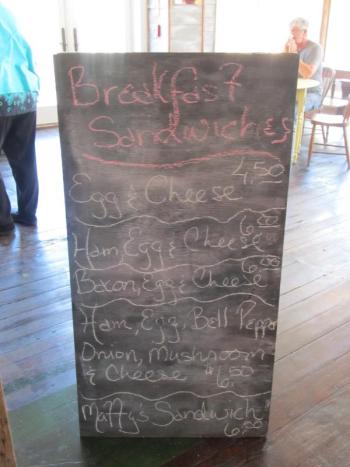 Breakfast
Sandwiches
4.50
Egg & Cheese
6.00
Ham, Egg & Cheese
6.00
Bacon, Egg & Cheese
Ham, Egg, Bell Pepper
Onion, Mushroom
& Cheese $6.50
Matty's Sandwich
6.50